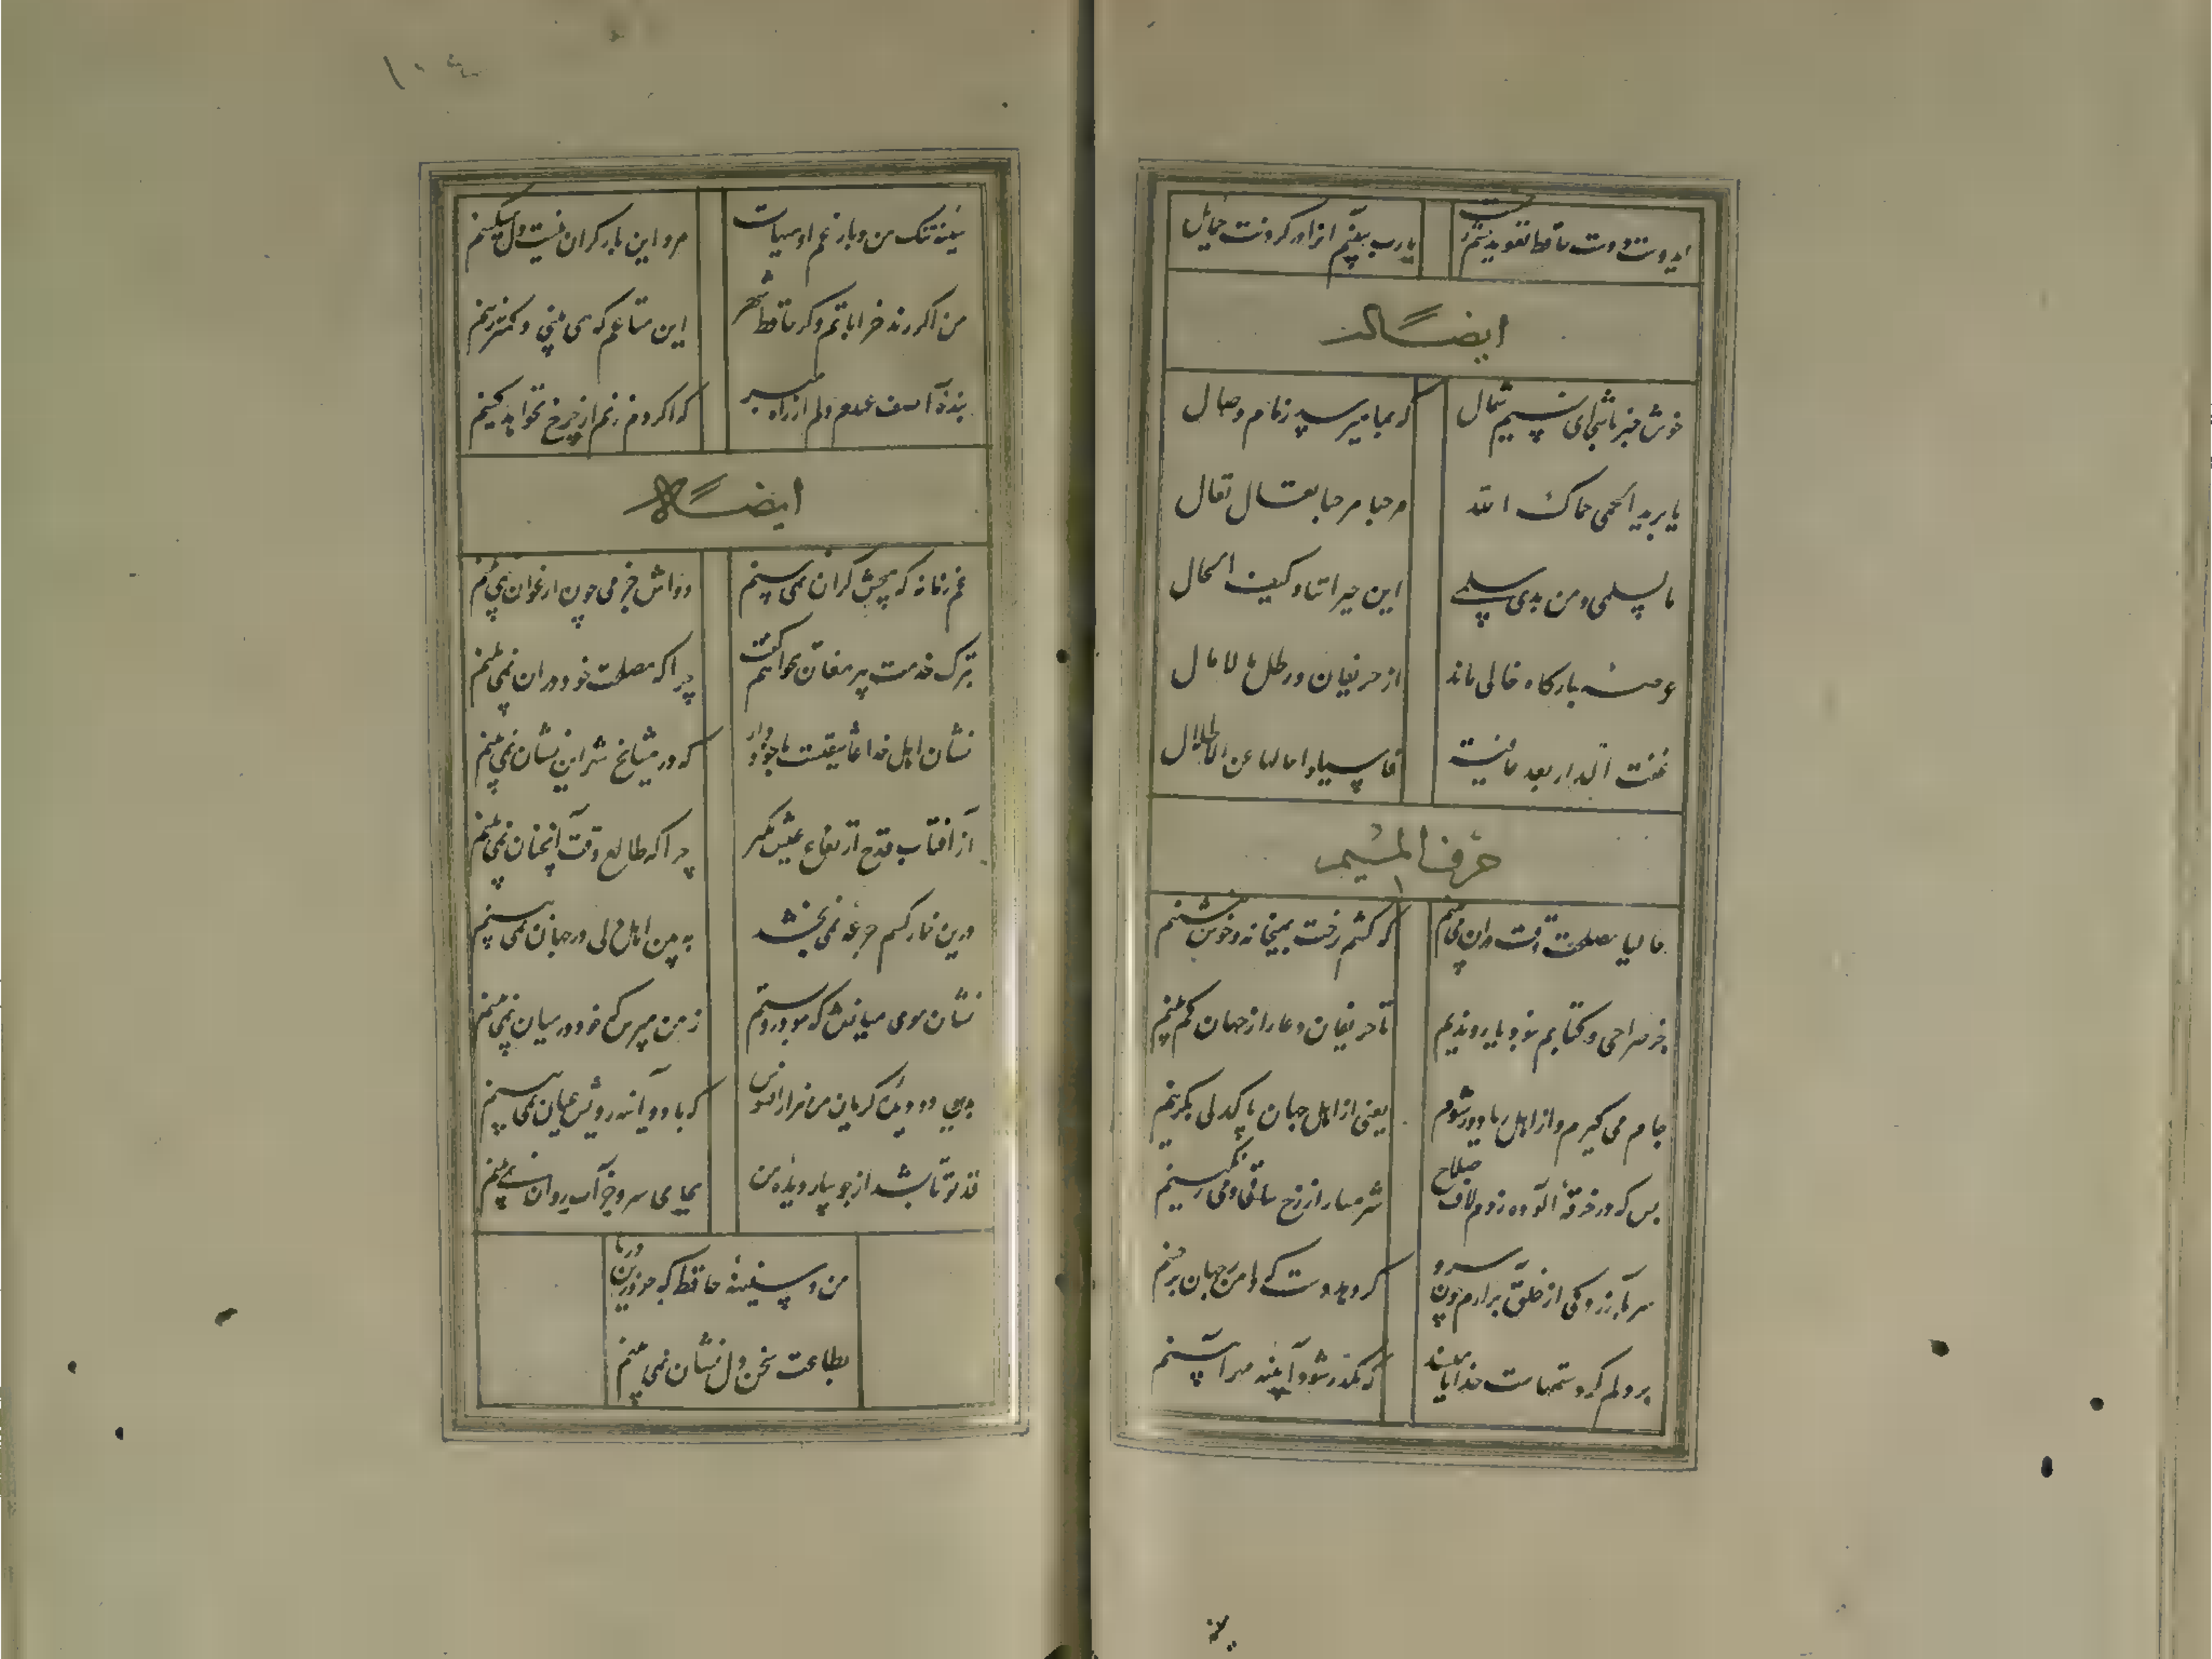 ای دوست دست حافظ تعویذ چشم زخمست
یارب ببینم آنرا در گردنت حمایل
ایضاً له
خوش خبر باشی ای نسیم شمال
که بما میرسد زمان وصال
یا برید الحمی حماک الله
مرحبا مرحبا تعال تعال
ما لسلمی و من بذی سلم
این جیراننا و کیف الحال
عرصه بارگاه خالی ماند
از حریفان و رطل مالامال
عفت الدار بعد عافیة
فاسیلوا حالها عن الاطلال
حرف المیم
حالیا مصلحت وقت در آن می بینم
که کشم رخت بمیخانه و خوش بنشینم
جز صراحی و کتابم نبود یار و ندیم
تا حریفان دغا را ز جهان کم بینم
جام می گیرم و از اهل ریا دور شوم
یعنی از اهل جهان پاکدلی بگزینم
بس که در خرقه آلوده زدم لاف صلاح
شرمسار از رخ ساقی و می رنگینم
سر بآزردگی از خلق برآرم چون سرو
گر دهد دست که دامن ز جهان برچینم
بر دلم گرد ستمهاست خدایا مپسند
که مکدر شود آیینه مهر آیینم
۱۰۴
سینه تنگ من و بار غم او هیهات
مرد این بار گران نیست دل مسکینم
من اگر رند خراباتم و گر حافظ شهر
این متاعم که همی بینی و کمتر زینم
بنده آصف عهدم دلم از راه مبر
که اگر دم زنم از چرخ بخواهد کینم
ایضاً له
غم زمانه که هیچش کران نمی بینم
دواش جز می چون ارغوان نمی بینم
بترک خدمت پیر مغان نخواهم گفت
چرا که مصلحت خود در آن نمی بینم
نشان اهل خدا عاشقیست با خود دار
که در مشایخ شهر این نشان نمی بینم
ز آفتاب قدح ارتفاع عیش بگیر
چرا که طالع وقت آنچنان نمی بینم
درین خمار کسم جرعه نمی بخشد
ببین که اهل دلی در جهان نمی بینم
نشان موی میانش که دل درو بستم
ز من مپرس که خود در میان نمی بینم
بدین دو دیده گریان من هزار افسوس
که با دو آینه رویش عیان نمی بینم
قد تو تا بشد از جویبار دیده من
بجای سرو جز آب روان نمی بینم
من و سفینه حافظ که جز درین دریا
بضاعت سخن دل نشان نمی بینم